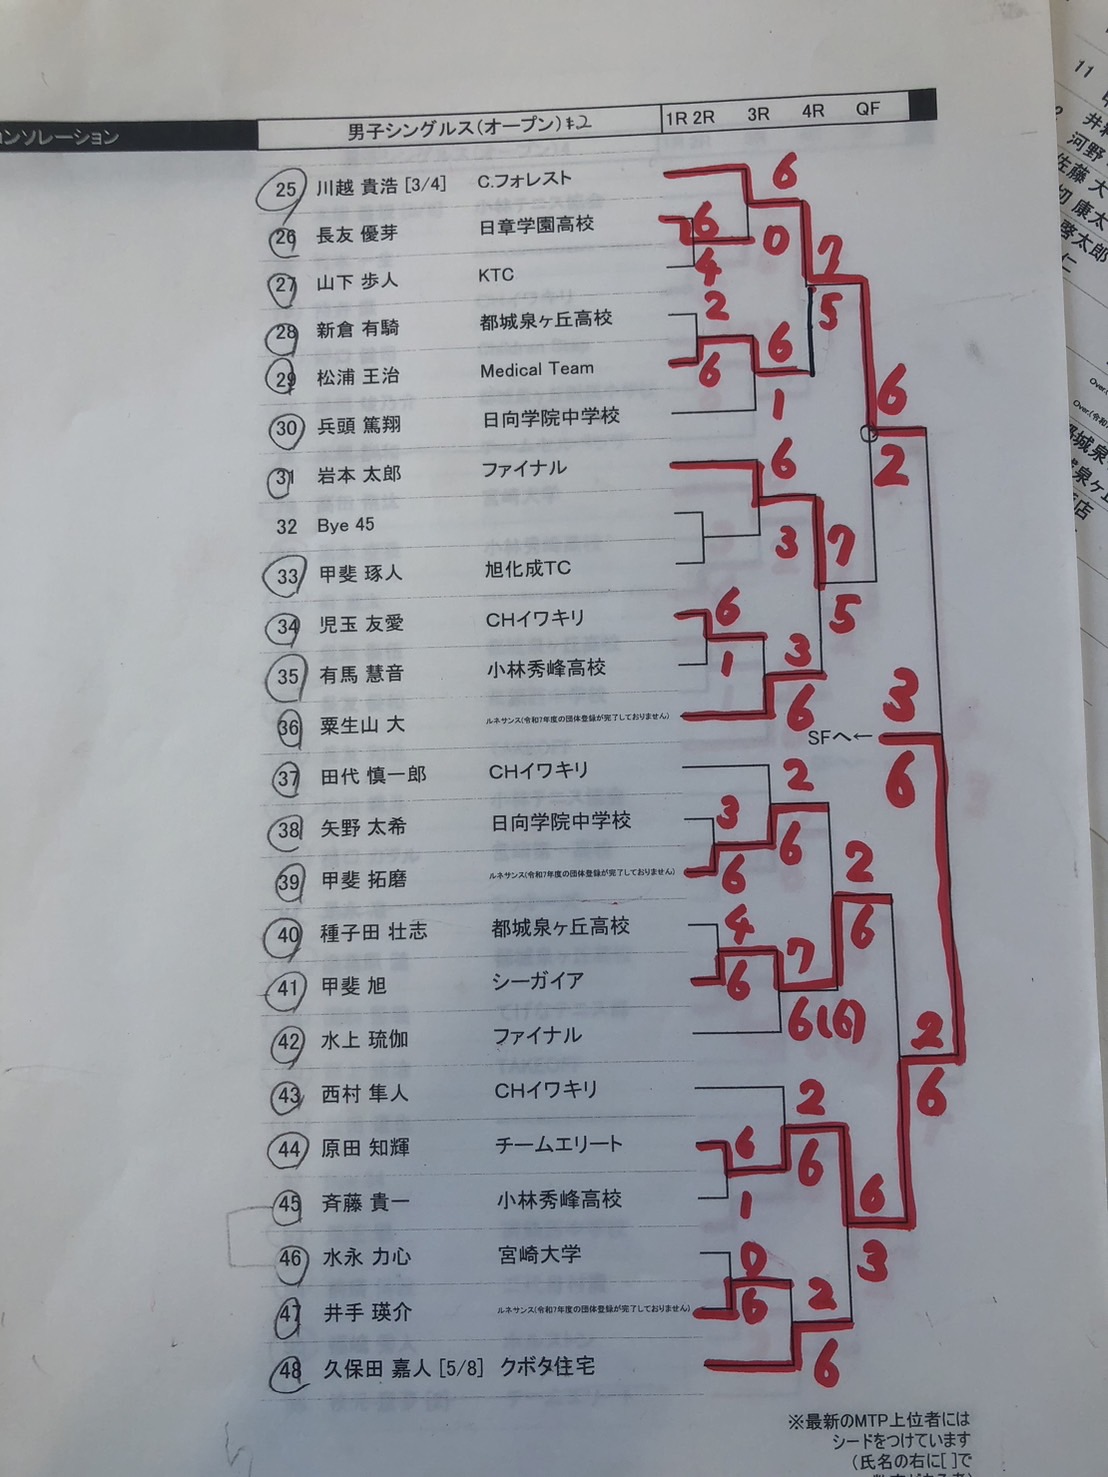 ンソレーション
男子シングルス(オープン)#2 1R 2R 3R 4R QF
25 川越 貴浩 [3/4] C.フォレスト
6
26 長友 優芽 日章学園高校
6 0
27 山下 歩人 KTC
4 7
28 新倉 有騎 都城泉ヶ丘高校
2 5
29 松浦 王治 Medical Team
6 6
30 兵頭 篤翔 日向学院中学校
1 6
31 岩本 太郎 ファイナル
6 2
32 Bye 45
3 7
33 甲斐 琢人 旭化成TC
34 児玉 友愛 CHイワキリ
6 5
35 有馬 慧音 小林秀峰高校
1 3
36 粟生山 大 ルネサンス(令和7年度の団体登録が完了しておりません)
6 3
SFへ←
37 田代 慎一郎 CHイワキリ
2 6
38 矢野 太希 日向学院中学校
3 6
39 甲斐 拓磨 ルネサンス(令和7年度の団体登録が完了しておりません)
6 2
40 種子田 壮志 都城泉ヶ丘高校
4 6
41 甲斐 旭 シーガイア
6 7
42 水上 琉伽 ファイナル
6(6) 2
43 西村 隼人 CHイワキリ
2 6
44 原田 知輝 チームエリート
6 6
45 斉藤 貴一 小林秀峰高校
1 6
46 水永 力心 宮崎大学
0 3
47 井手 瑛介 ルネサンス(令和7年度の団体登録が完了しておりません)
6 2
48 久保田 嘉人 [5/8] クボタ住宅
6
※最新のMTP上位者には
シードをつけています
(氏名の右に[ ]で
11
河野
佐藤 大
康太
啓太郎
仁